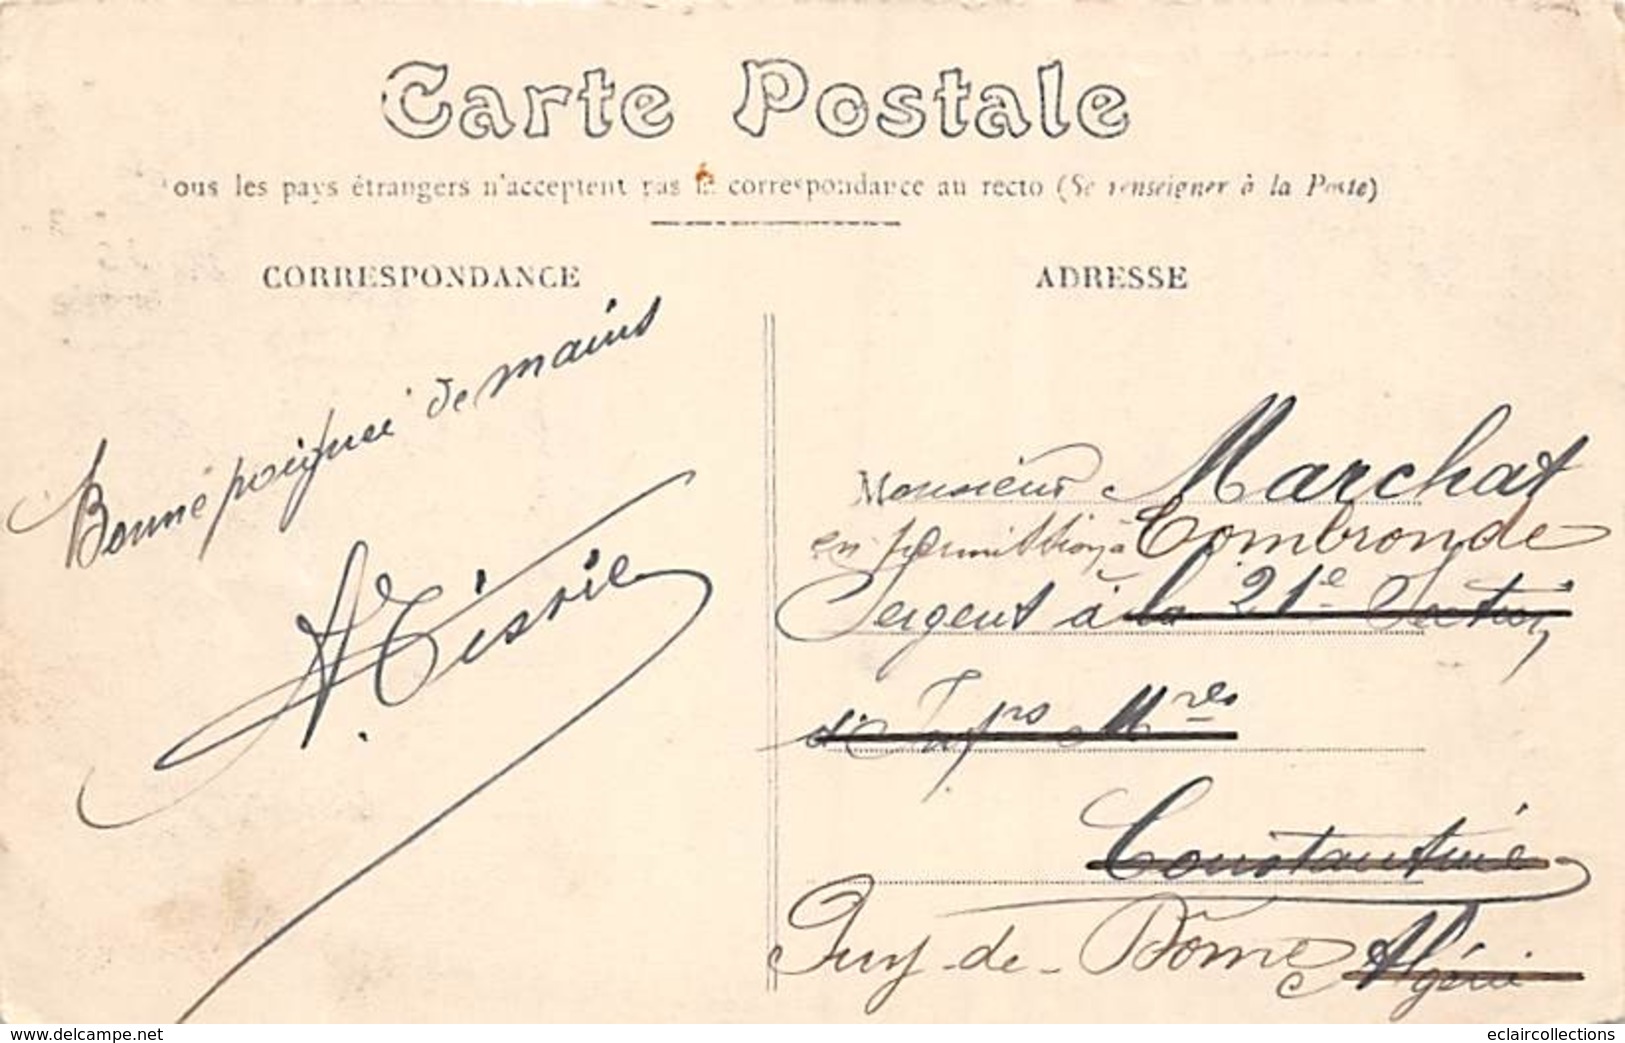 Carte Postale
ous les pays étrangers n'acceptent pas la correspondance au recto (Se renseigner à la Poste)
CORRESPONDANCE
Bonne poignée de mains
A. Tissrie
ADRESSE
Monsieur Marchat
en permission à Combronde
Sergent à la 21e Section
d' Mres
Constantine
Puy-de-Dôme Algérie
www.delcampe.net
eclaircollections